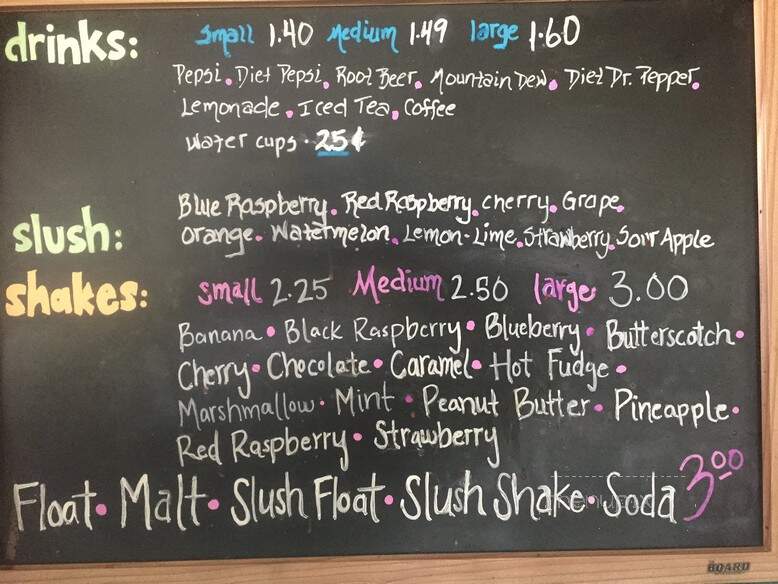 drinks: small 1.40 Medium 1.49 large 1.60
Pepsi. Diet Pepsi. Root Beer. Mountain Dew. Diet Dr. Pepper.
Lemonade. Iced Tea. Coffee
water cups · 25¢
Blue Raspberry. Red Raspberry. cherry. Grape.
slush: orange. Watermelon. Lemon-Lime. Strawberry. Sour Apple
shakes: small 2.25 Medium 2.50 large 3.00
Banana • Black Raspberry • Blueberry • Butterscotch •
Cherry • Chocolate • Caramel • Hot Fudge •
Marshmallow • Mint • Peanut Butter • Pineapple •
Red Raspberry • Strawberry
Float • Malt • Slush Float • Slush Shake • Soda 3.00
BOARD